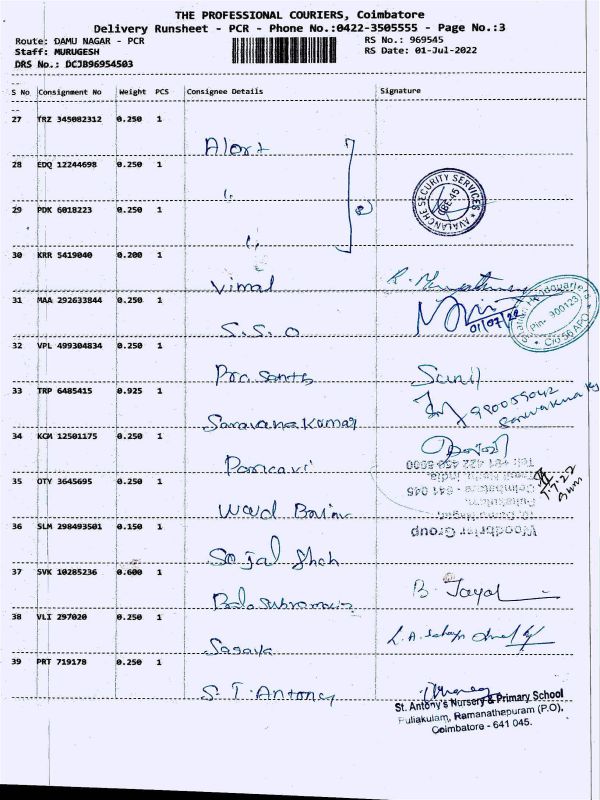 THE PROFESSIONAL COURIERS, Coimbatore
Delivery Runsheet - PCR - Phone No.:0422-3505555 - Page No.:3
Route: DAMU NAGAR - PCR
RS No.: 969545
Staff: MURUGESH
RS Date: 01-Jul-2022
DRS No.: DCJB96954503
S No Consignment No Weight PCS Consignee Details Signature
27 TRZ 345082312 0.250 1
Alert
28 EDQ 12244698 0.250 1
"
AVALANCHE SECURITY SERVICES
CBE-45
29 PDK 6018223 0.250 1
"
30 KRR 5419040 0.200 1
Vimal
31 MAA 292633844 0.250 1
S.S.O
01/07/22
Pin- 900123
C/o 56 APO
32 VPL 499304834 0.250 1
Prasanth Sunil
33 TRP 6485415 0.925 1
Saravana Kumar
34 KGM 12501175 0.250 1
Tel: +91 422 450 5000
Tamil Nadu, India
35 OTY 3645695 0.250 1
Coimbatore - 641 045
Puliakulam,
1.7.22
Damu Nagar,
Woodbriar Group
36 SLM 298493501 0.150 1
Sojal Shah
37 SVK 10285236 0.600 1
B. Jayal
38 VLI 297020 0.250 1
39 PRT 719178 0.250 1
S.T. Antoney
St. Antony's Nursery & Primary School
Puliakulam, Ramanathepuram (P.O),
Coimbatore - 641 045.